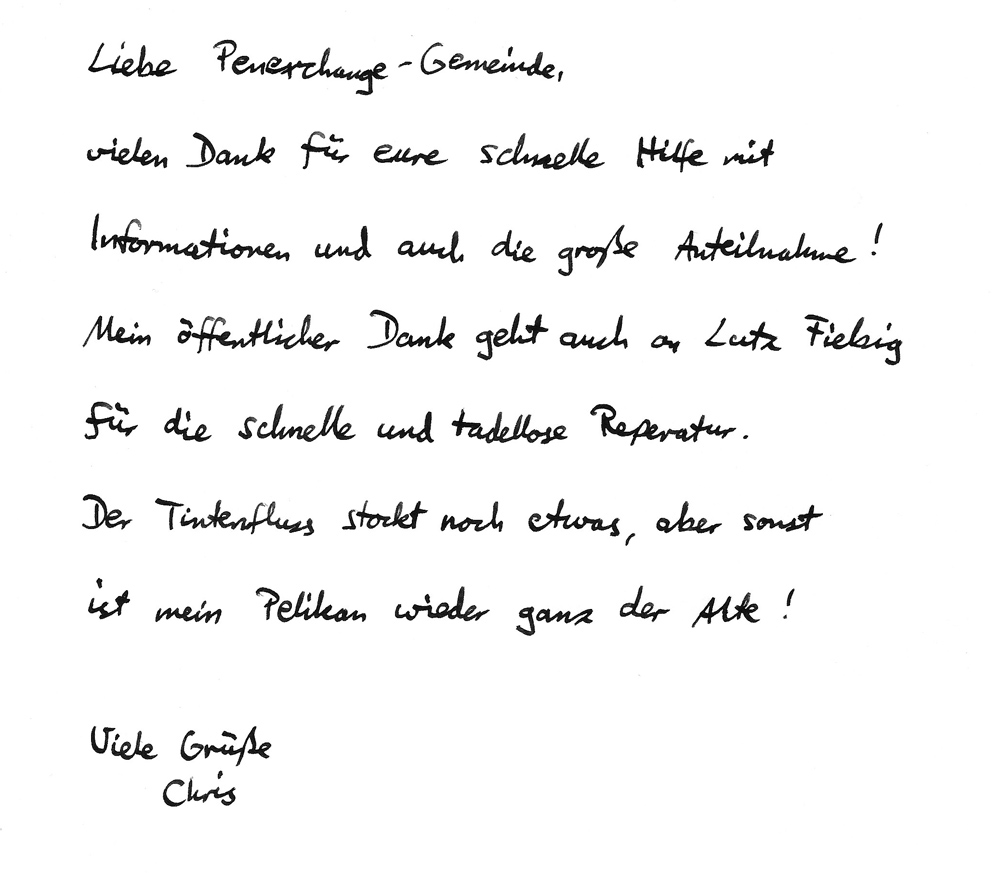 Liebe Penexchange-Gemeinde,
vielen Dank für eure schnelle Hilfe mit
Informationen und auch die große Anteilnahme!
Mein öffentlicher Dank geht auch an Lutz Fiebig
für die schnelle und tadellose Reperatur.
Der Tintenfluss stockt noch etwas, aber sonst
ist mein Pelikan wieder ganz der Alte!
Viele Grüße
Chris